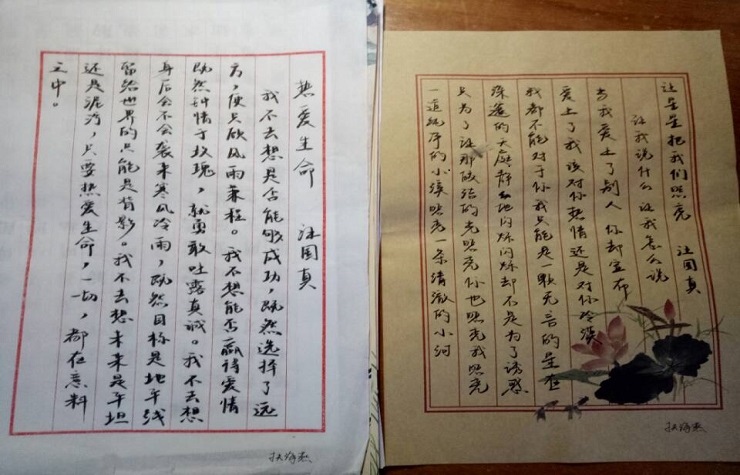 热爱生命 汪国真
我不去想是否能够成功，既然选择了远
方，便只顾风雨兼程。我不想能否赢得爱情
既然钟情于玫瑰，就勇敢吐露真诚。我不去想
身后会不会袭来寒风冷雨，既然目标是地平线
留给世界的只能是背影。我不去想未来是平坦
还是泥泞，只要热爱生命，一切，都在意料
之中。
让星星把我们照亮 汪国真
让我说什么 让我怎么说
当我爱上了别人 你却宣布
爱上了我 该对你热情还是对你冷漠
我都不能 对于你我只能是一颗无言的星 在
深邃的天庭静静地闪烁闪烁却不是为了诱惑
只为了让那皎洁的光照亮你也照亮我 照亮
一道的小溪 照亮一条清澈的小河